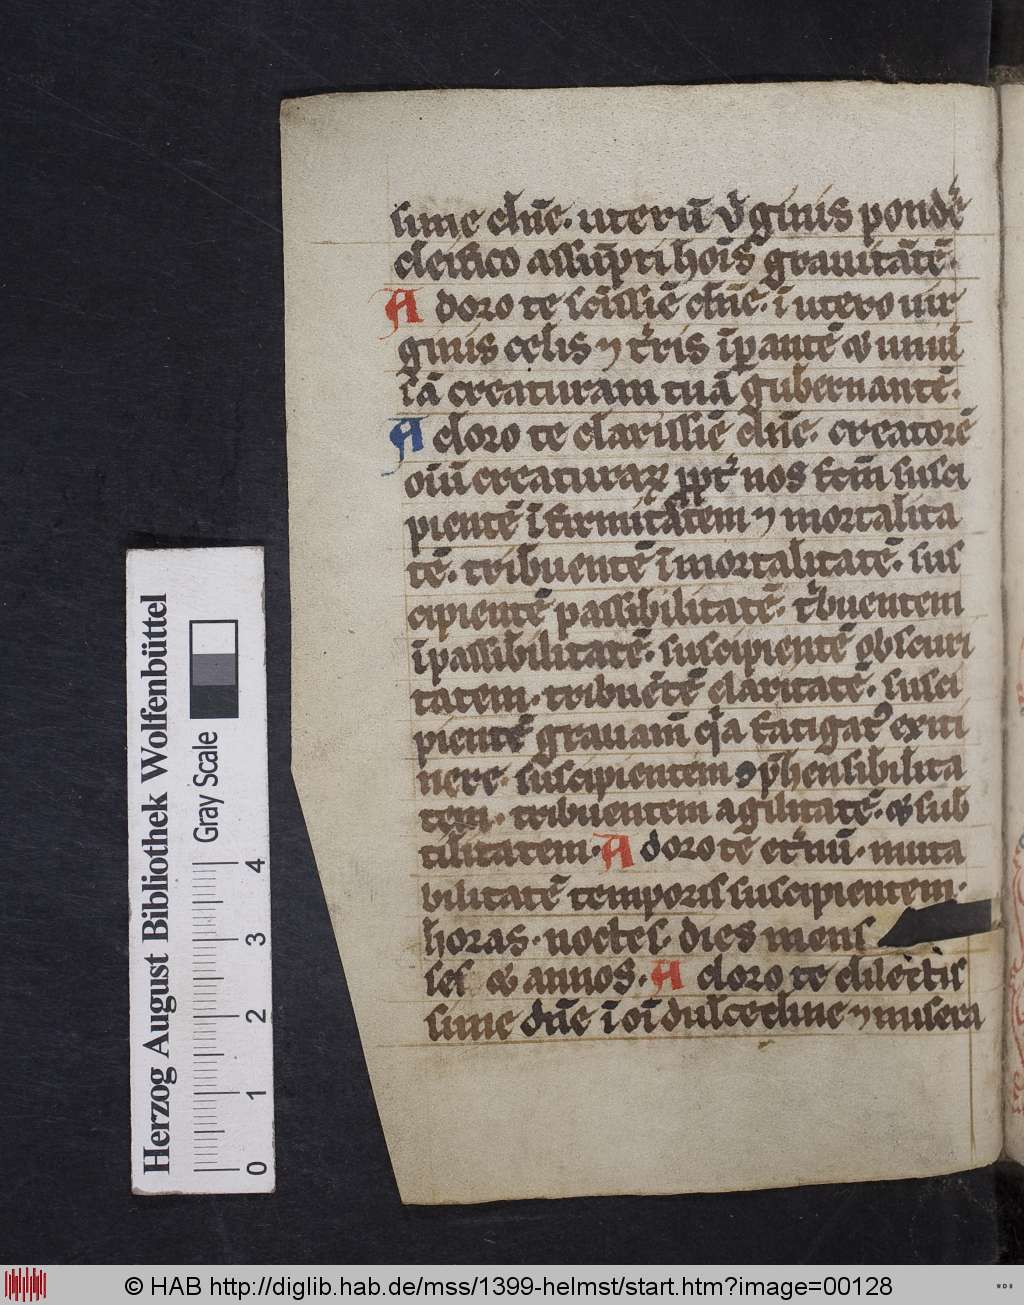 sime dn̄e. uterū v̇ginis pondē
deifico assūpti hoīs grauitātē.
Adoro te sc̄issīe dn̄e. ī utero uir
ginis celis ⁊ t̓ris īpantē ⁊ uniu̓
sā creaturam tuā gubernantē.
Adoro te clarissīe dn̄e. creatorē
oīū creaturaꝝ ꝓpt̓ nos fc̄m susci
pientē īfirmitātem ⁊ mortalita
tē. tribuentē īmortalitatē. sus
cipientē passibilitatē. t̓buentem
īpassibilitatē. suscipientē obscuri
tatem. tribuētē claritatē. susci
pientē grauam̄
nere. suscipientem ꝯp̄hensibilita
tem. tribuentem agilitatē. ⁊ sub
tilitatem. Adoro te et̓nū. muta
bilitatē temporis suscipientem.
horas. noctes. dies mens
ses ⁊ annos. Adoro te dilectis
sime dn̄e ī oī dulcedine ⁊ misera
Herzog August Bibliothek Wolfenbüttel
Gray Scale
0 1 2 3 4
© HAB http://diglib.hab.de/mss/1399-helmst/start.htm?image=00128